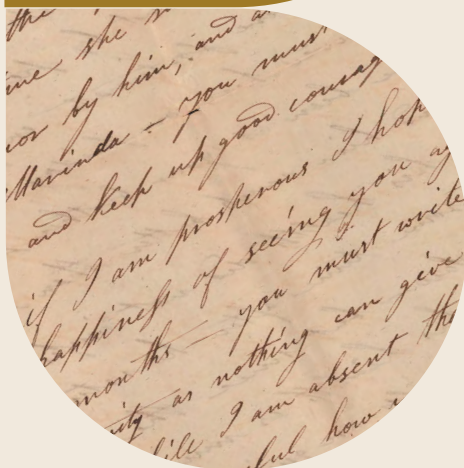 the
she
by him, and
Marinda — you must
and keep up good courag
if I am prosperous I hop
happiness of seeing you ag
months — you must write
as nothing can give
I am absent the
how